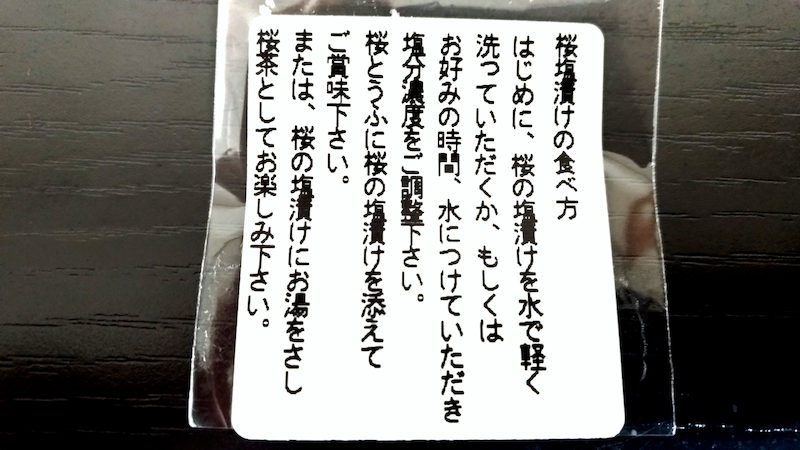 桜塩漬けの食べ方
はじめに、桜の塩漬けを水で軽く
洗っていただくか、もしくは
お好みの時間、水につけていただき
塩分濃度をご調整下さい。
桜とうふに桜の塩漬けを添えて
ご賞味下さい。
または、桜の塩漬けにお湯をさし
桜茶としてお楽しみ下さい。